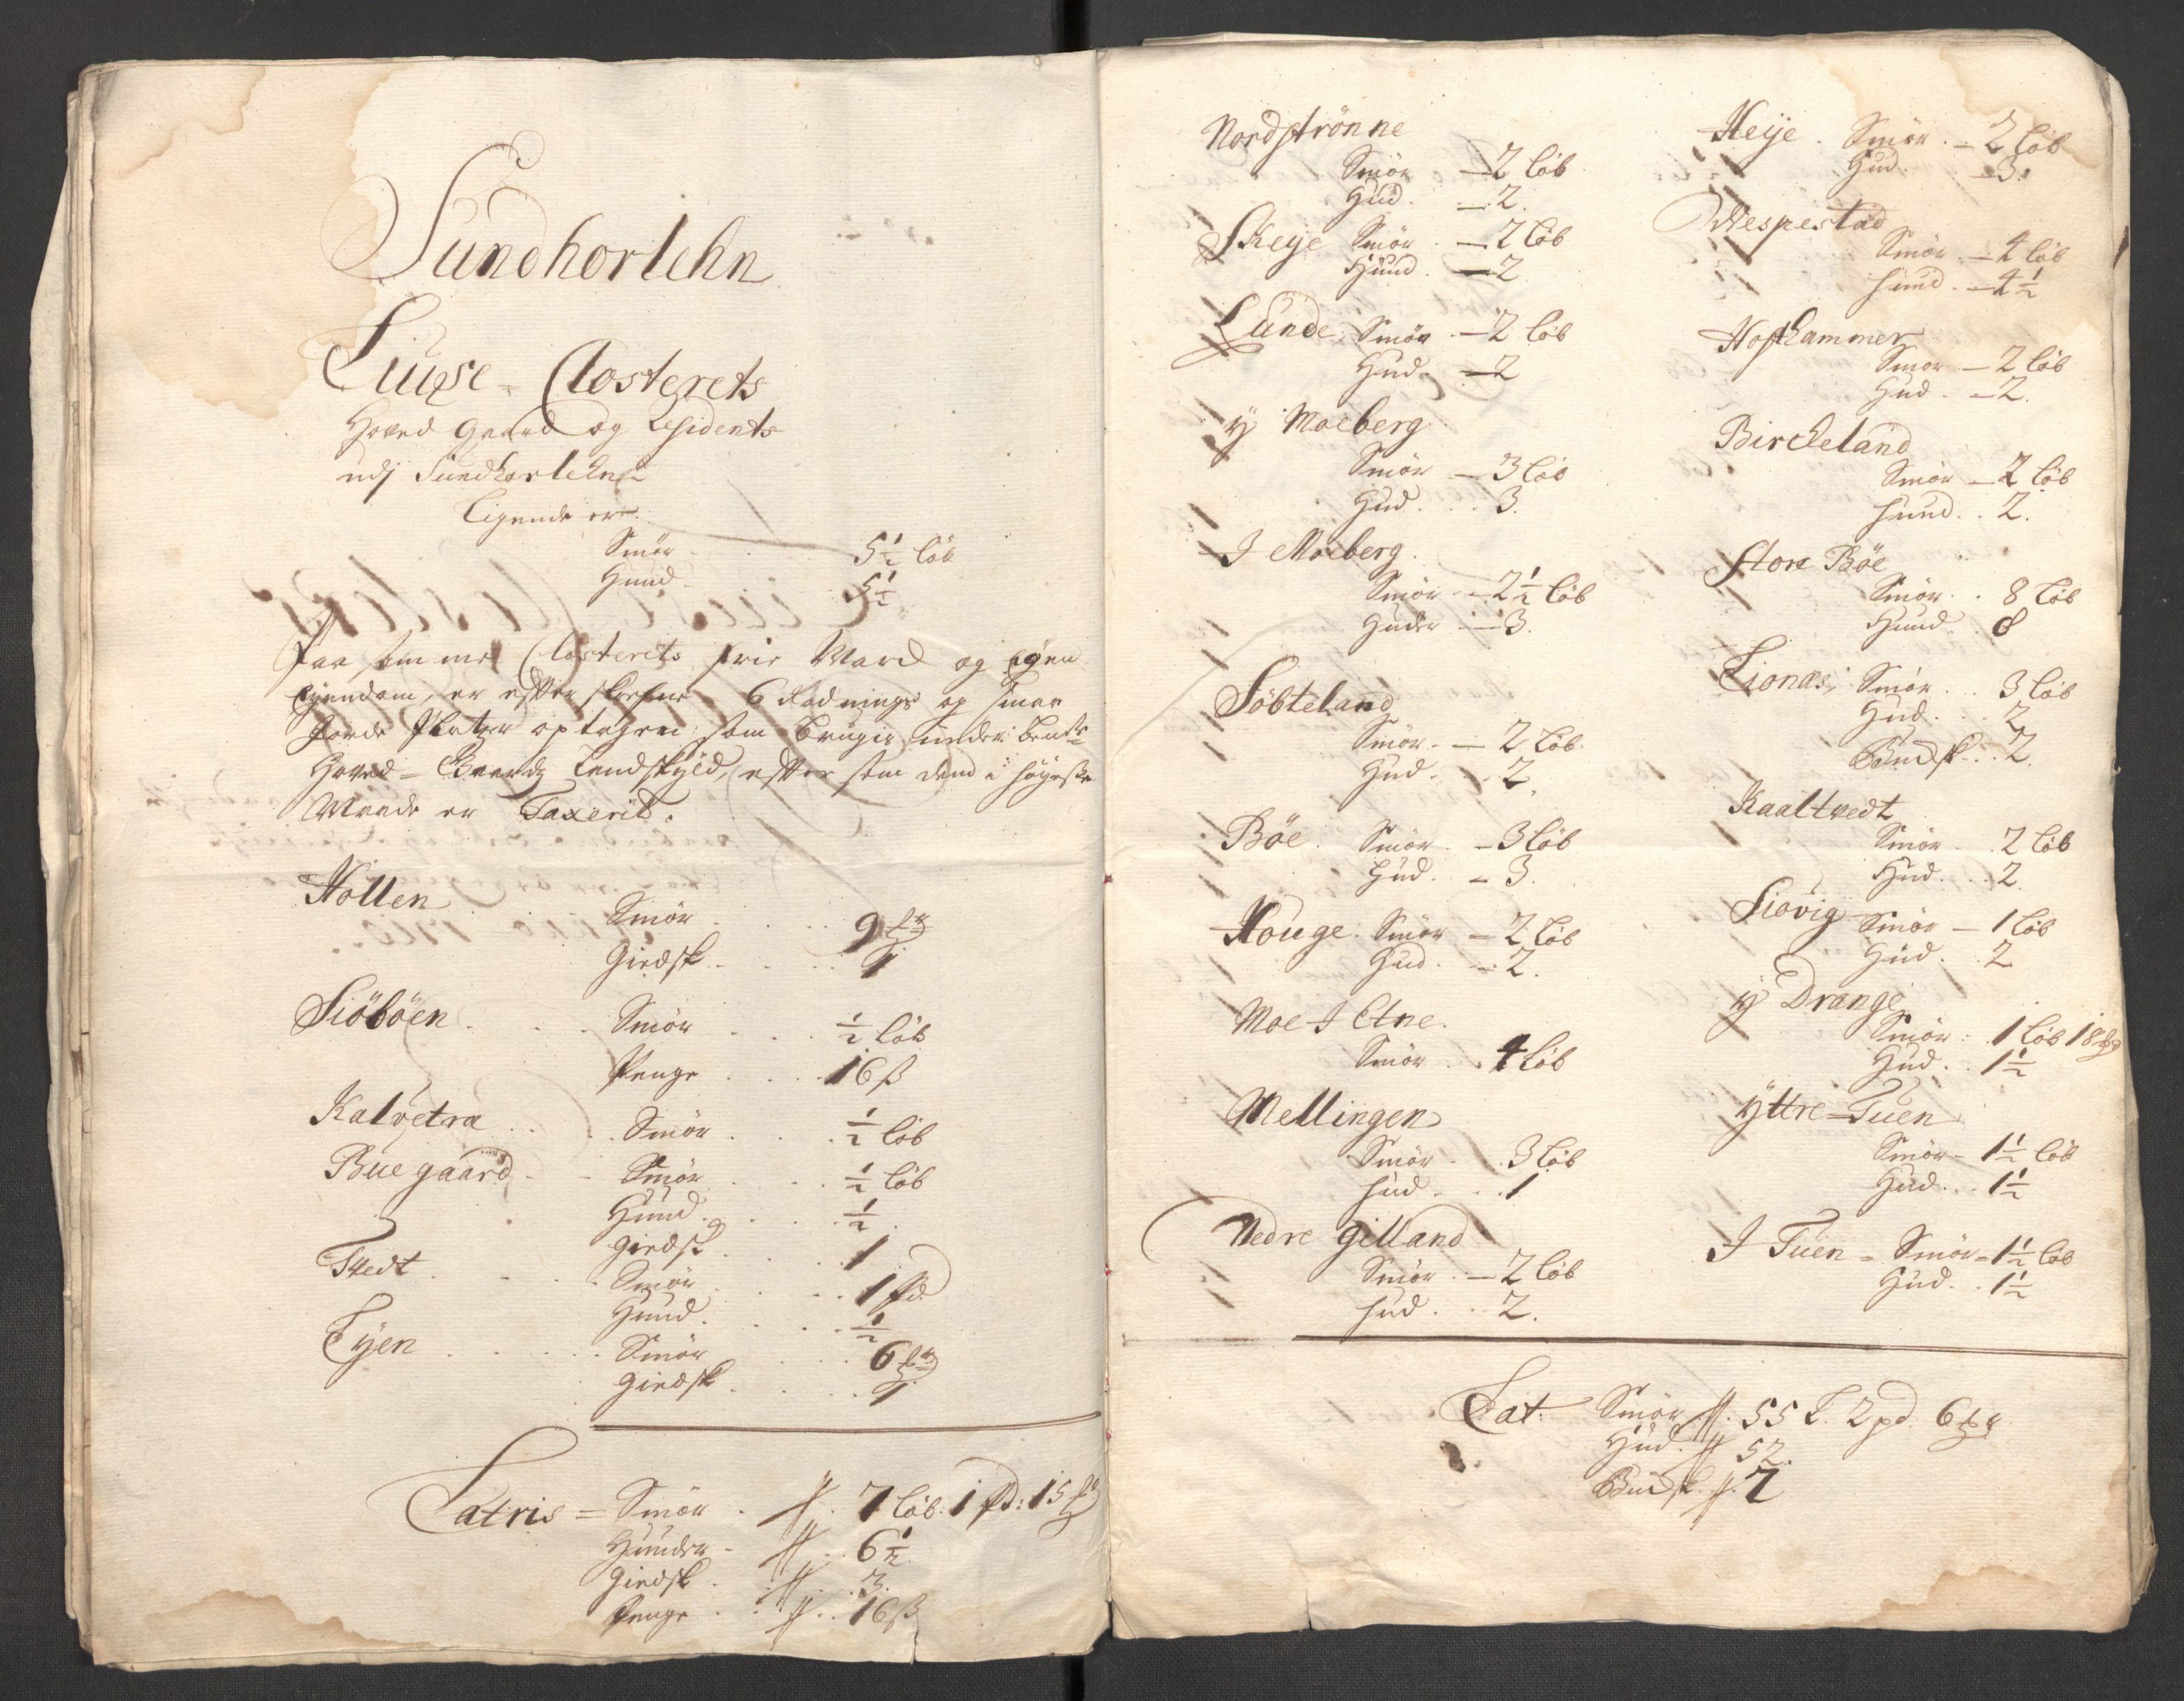 Sundhorlehn
Liuse = Closterets
Hoved gaard og Residents
udj Sundhorlehn
Liggende er
Smör . . . 5 1/2 löb
Huud . . . 5 1/2
Paa samme Closterets frie Marck og Egen
Eyendom, er efter skrefne 6 Rødnings og smaa
Jorde Pladtzer optagen som brugis under bem.te
Hoved = Gaards Landskyld, efter som dend i höyeste
Maade er Taxerit.
Hollen Smör . . . 9 ℔
Giedsk . . . 1
Siöböen . . . Smör . . . 1/2 löb
Penge . . . 16 ß
Kalvetra . . . Smör . . . 1/2 löb
Bue gaard - - Smör . . . 1/2 löb
Huud . . . 1/2
giedsk . . . 1
Tvedt . . . Smör . . . 1 pd
Huud . . . 1/2
Tyen . . . Smör . . . 6 ℔
giedsk . . . 1
Latris = Smör . 7 Löb: 1 pd: 15 ℔
Huuder - 6 1/2
giedsk . 3.
Penge . 16 ß
Nordströnne
Smör — 2 löb
Hud. — 2.
Skeye Smör — 2 löb
Huud. — 2
Lunde Smör — 2 löb
Hud. — 2
y Moeberg
Smör — 3 löb
Hud . . . 3.
J Moeberg.
Smör — 2 1/2 löb
Huder — 3.
Söbteland
Smör — 2 löb.
Hud. . . 2.
Böe. Smör. — 3 löb
Hud. — 3.
Houge. Smör — 2 löb
Hud. — 2.
Moe J Etne.
Smör . . 4 löb
Mellingen
Smör . . 3 löb
Hud . . . 1
Nedre gilland
Smör. — 2 löb
Hud. . . 2.
Heye. Smör. — 2 löb
Hud. — 3.
Vespestad
Smör — 4 löb
Huud. — 4 1/2
Hofhammer
Smör — 2 löb
Hud. — 2.
Birckeland
Smör — 2 löb
Huud. . 2.
Store Böe
Smör. . 8 löb
Huud. . 8
Lionæs, Smör. . 3 löb
Hud. . . 2
Buksk. . . 2.
Kaaltvedt
Smör . . 2 löb
Hud. . . 2.
Siövig Smör — 1 löb
Hud. . 2
y Drange
Smör: . 1 löb 18 ℔
Hud. . 1 1/2
Yttre = Tuen
Smör — 1 1/2 löb
Hud. . . 1 1/2
J Tuen = Smör = 1 1/2 löb
Hud. . 1 1/2
Lat. Smör. 55 L. 2 pd. 6 ℔
Hud. 52.
Buksk. 2